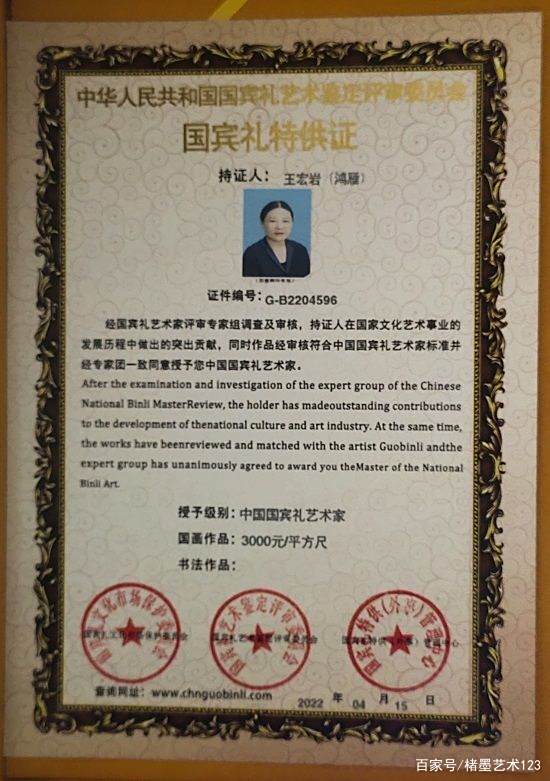 中华人民共和国国宾礼艺术鉴定评审委员会
国宾礼特供证
持证人： 王宏岩（鸿雁）
证件编号：G-B2204596
经国宾礼艺术家评审专家组调查及审核，持证人在国家文化艺术事业的
发展历程中做出的突出贡献，同时作品经审核符合中国国宾礼艺术家标准并
经专家团一致同意授予您中国国宾礼艺术家。
After the examination and investigation of the expert group of the Chinese
National Binli MasterReview, the holder has madeoutstanding contributions
to the development of thenational culture and art industry. At the same time,
the works have beenreviewed and matched with the artist Guobinli andthe
expert group has unanimously agreed to award you theMaster of the National
Binli Art.
授予级别：中国国宾礼艺术家
国画作品：3000元/平方尺
书法作品：
查询网址：www.chnguobinli.com
2022 年 04 月 15 日
百家号/楮墨艺术123